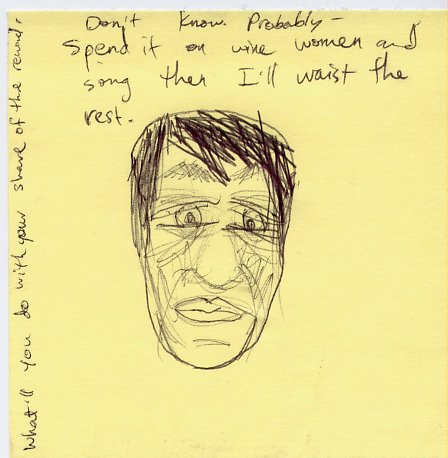 What'll you do with your share of the reward.
Don't Know. Probably -
Spend it on wine women and
song then I'll waist the
rest.